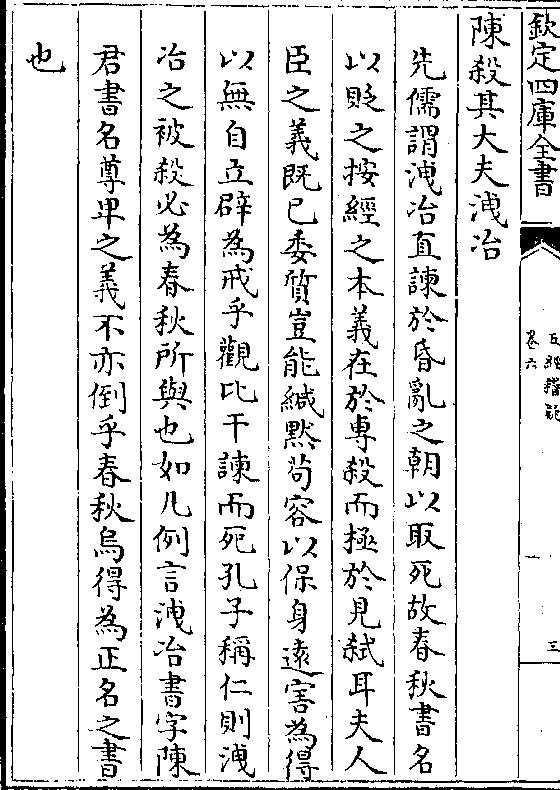 欽定四庫全書
五經稽疑
卷六
三
陳殺其大夫洩冶
先儒謂洩冶直諫於昏亂之朝以取死故春秋書名
以貶之按經之本義在於專殺而極於見弑耳夫人
臣之義既已委質豈能緘默苟容以保身遠害為得
以無自立辟為戒乎觀比干諫而死孔子稱仁則洩
冶之被殺必為春秋所與也如凡例言洩冶書字陳
君書名尊卑之義不亦倒乎春秋烏得為正名之書
也